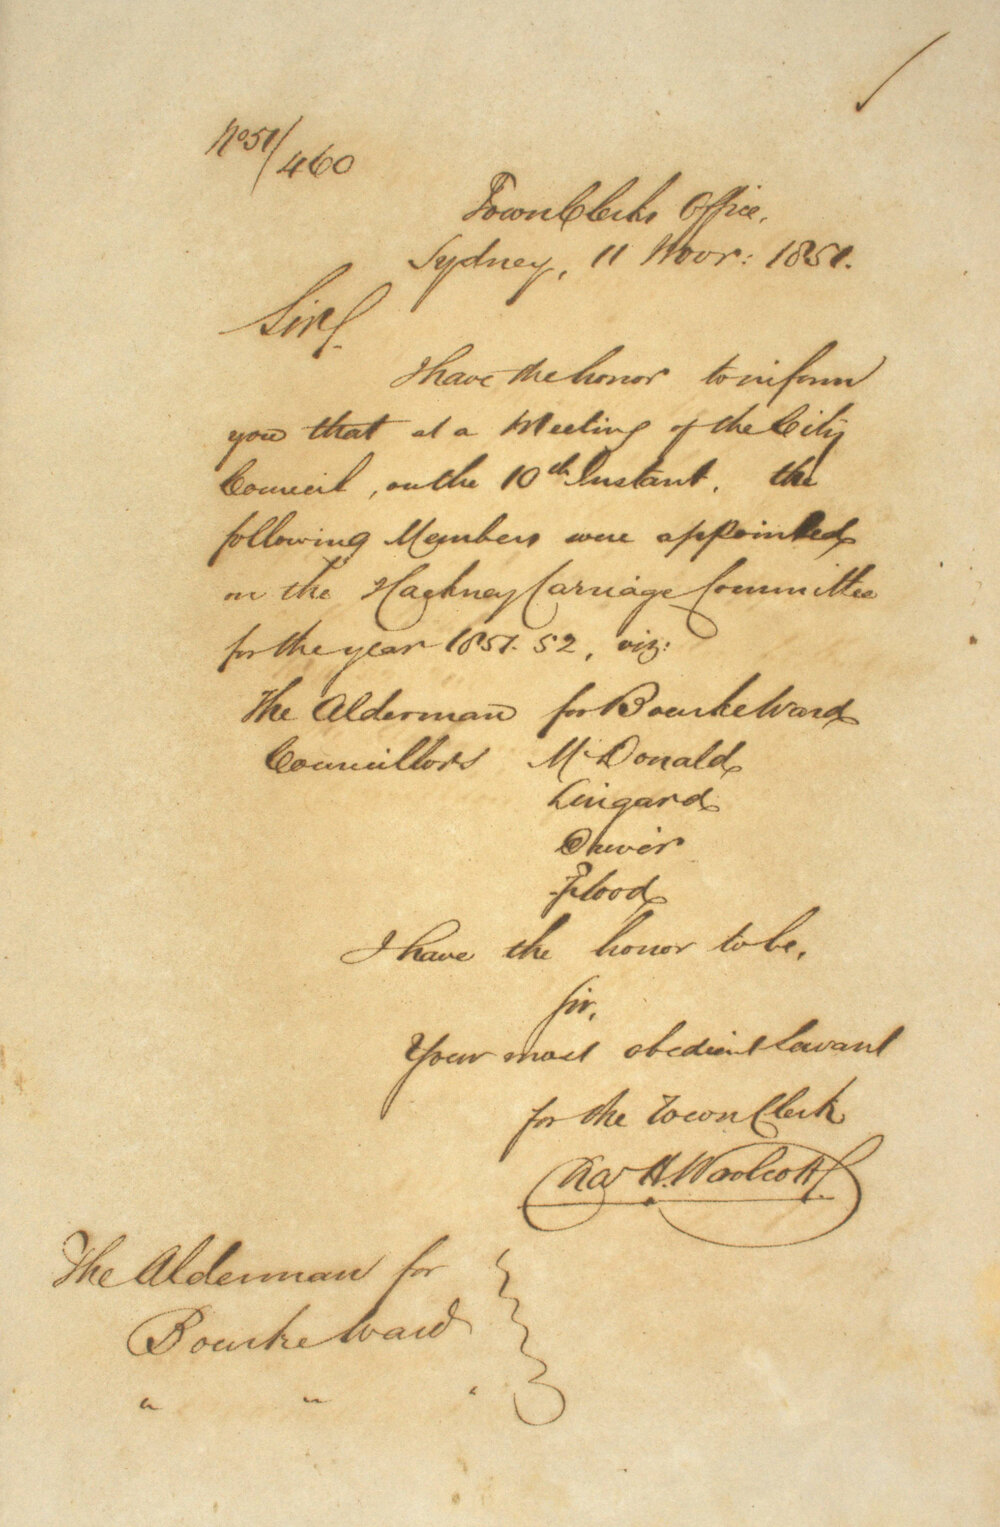 No 51/460
Town Clerks Office,
Sydney, 11 Novr: 1851.
Sir,
I have the honor to inform
you that at a Meeting of the City
Council, on the 10th Instant, the
following Members were appointed
on the Hackney Carriage Committee
for the year 1851. 52, viz:
The Alderman for Bourke Ward
Councillors McDonald
Lingard
Driver
Flood
I have the honor to be,
Sir,
Your most obedient Servant
for the Town Clerk
Chas H. Woolcott
The Alderman for
Bourke Ward
" " "